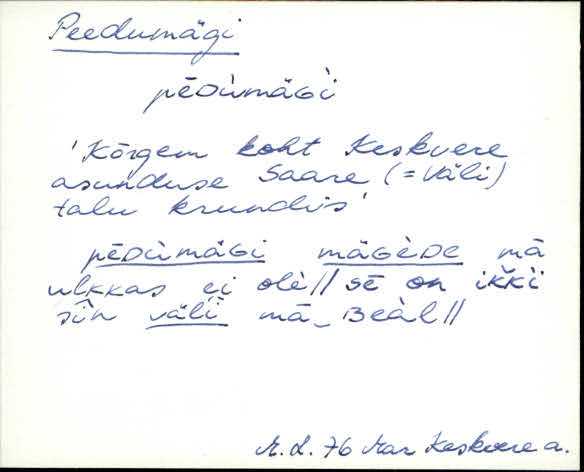 Peedumägi
pēDùmäGì
'Kõrgem koht Keskvere
asunduse Saare (= Väli)
talu krundis'
pēDùmäGi mäGèDe mā
ulkkas ei olè // sē on ikkì
sîn väli mā_Beàl //
M. L. 76 Mar Keskvere a.